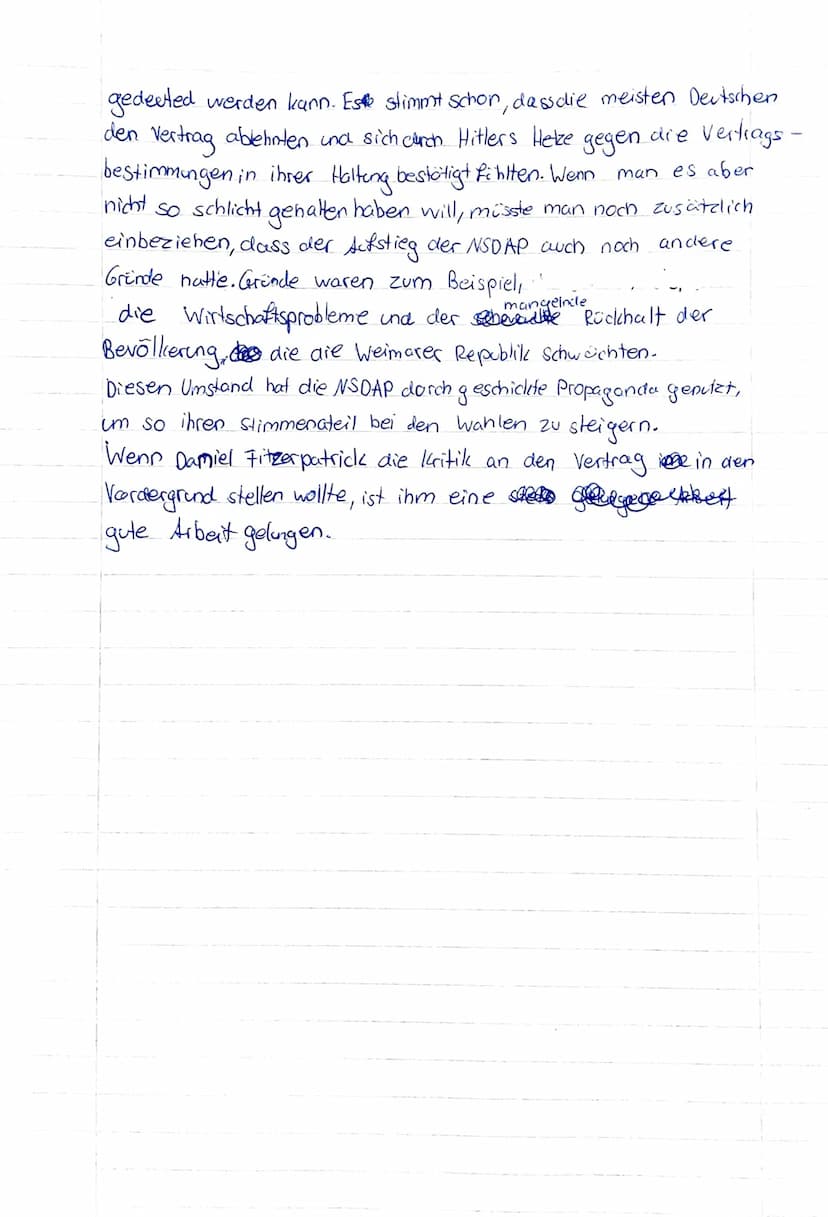 gedeuted werden kann. Es stimmt schon, dass die meisten Deutschen
den Vertrag ablehnten und sich durch Hitlers Hetze gegen die Vertrags-
bestimmungen in ihrer Haltung bestätigt fühlten. Wenn man es aber
nicht so schlicht gehalten haben will, müsste man noch zusätzlich
einbeziehen, dass der Aufstieg der NSDAP auch noch andere
Gründe hatte. Gründe waren zum Beispiel,
die Wirtschaftsprobleme und der mangelnde Rückhalt der
Bevölkerung, die die Weimarer Republik schwächten.
Diesen Umstand hat die NSDAP durch geschickte Propaganda genutzt,
um so ihren Stimmenateil bei den Wahlen zu steigern.
Wenn Damiel Fitzerpatrick die Kritik an den Vertrag in den
Vordergrund stellen wollte, ist ihm eine
gute Arbeit gelungen.